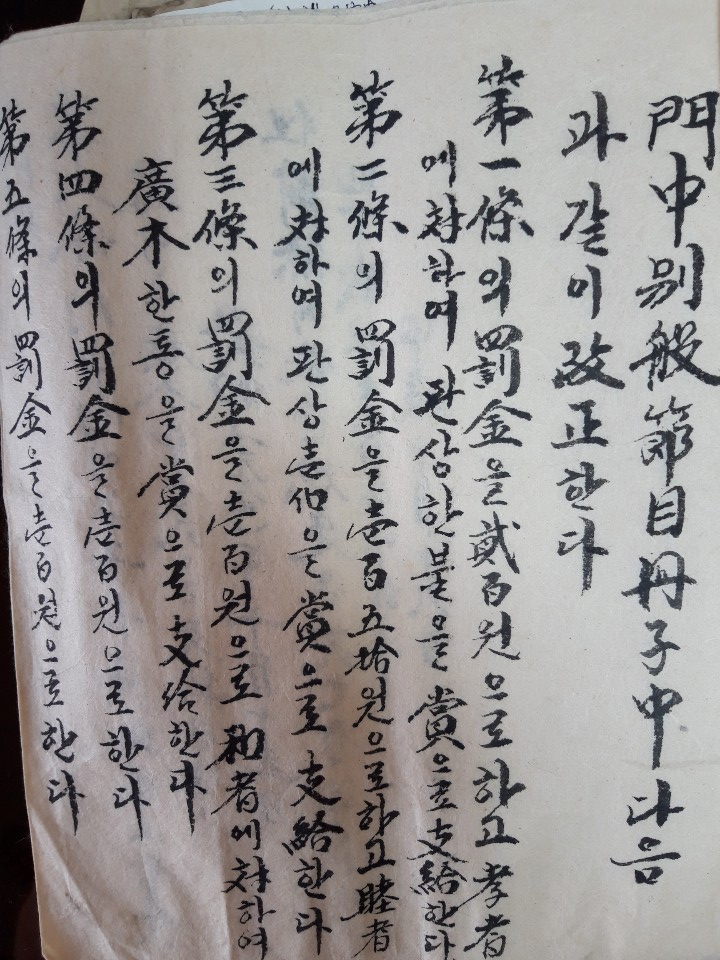 門中別般節目冊子中 다음
과 같이 改正한다
第一條의 罰金을 貳百원으로하고 孝者
에 対하여 판상한불을 賞으로 支給한다
第二條의 罰金을 壱百五拾원으로하고 睦者
에 対하여 판상壱 을 賞으로 支給한다
第三條의 罰金을 壱百원으로 和者에 対하여
廣木한통을 賞으로 支給한다
第四條의 罰金을 壱百원으로한다
第五條의 罰金을 壱百원으로한다